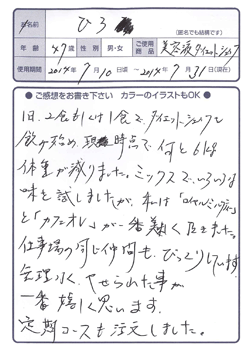 お名前 ひろ
(匿名でも結構です)
年齢 47才 性別 男・女 ご使用商品 美容液ダイエットシェイク
使用期間 2014年7月10日頃 ~ 2014年7月31日(現在)
●ご感想をお書き下さい カラーのイラストもOK●
1日、2食もしくは1食で、ダイエットシェイクを
飲み始め、現時点で何と6kg
体重が減りました。ミックスでいろいろな
味を試しましたが、私は「ロイヤルミルクティー」
と「カフェオレ」が一番美味しく
仕事場の 仲間も、びっくりしています。
無理なく、やせられた事が
一番嬉しく思います。
定期コースも注文しました。